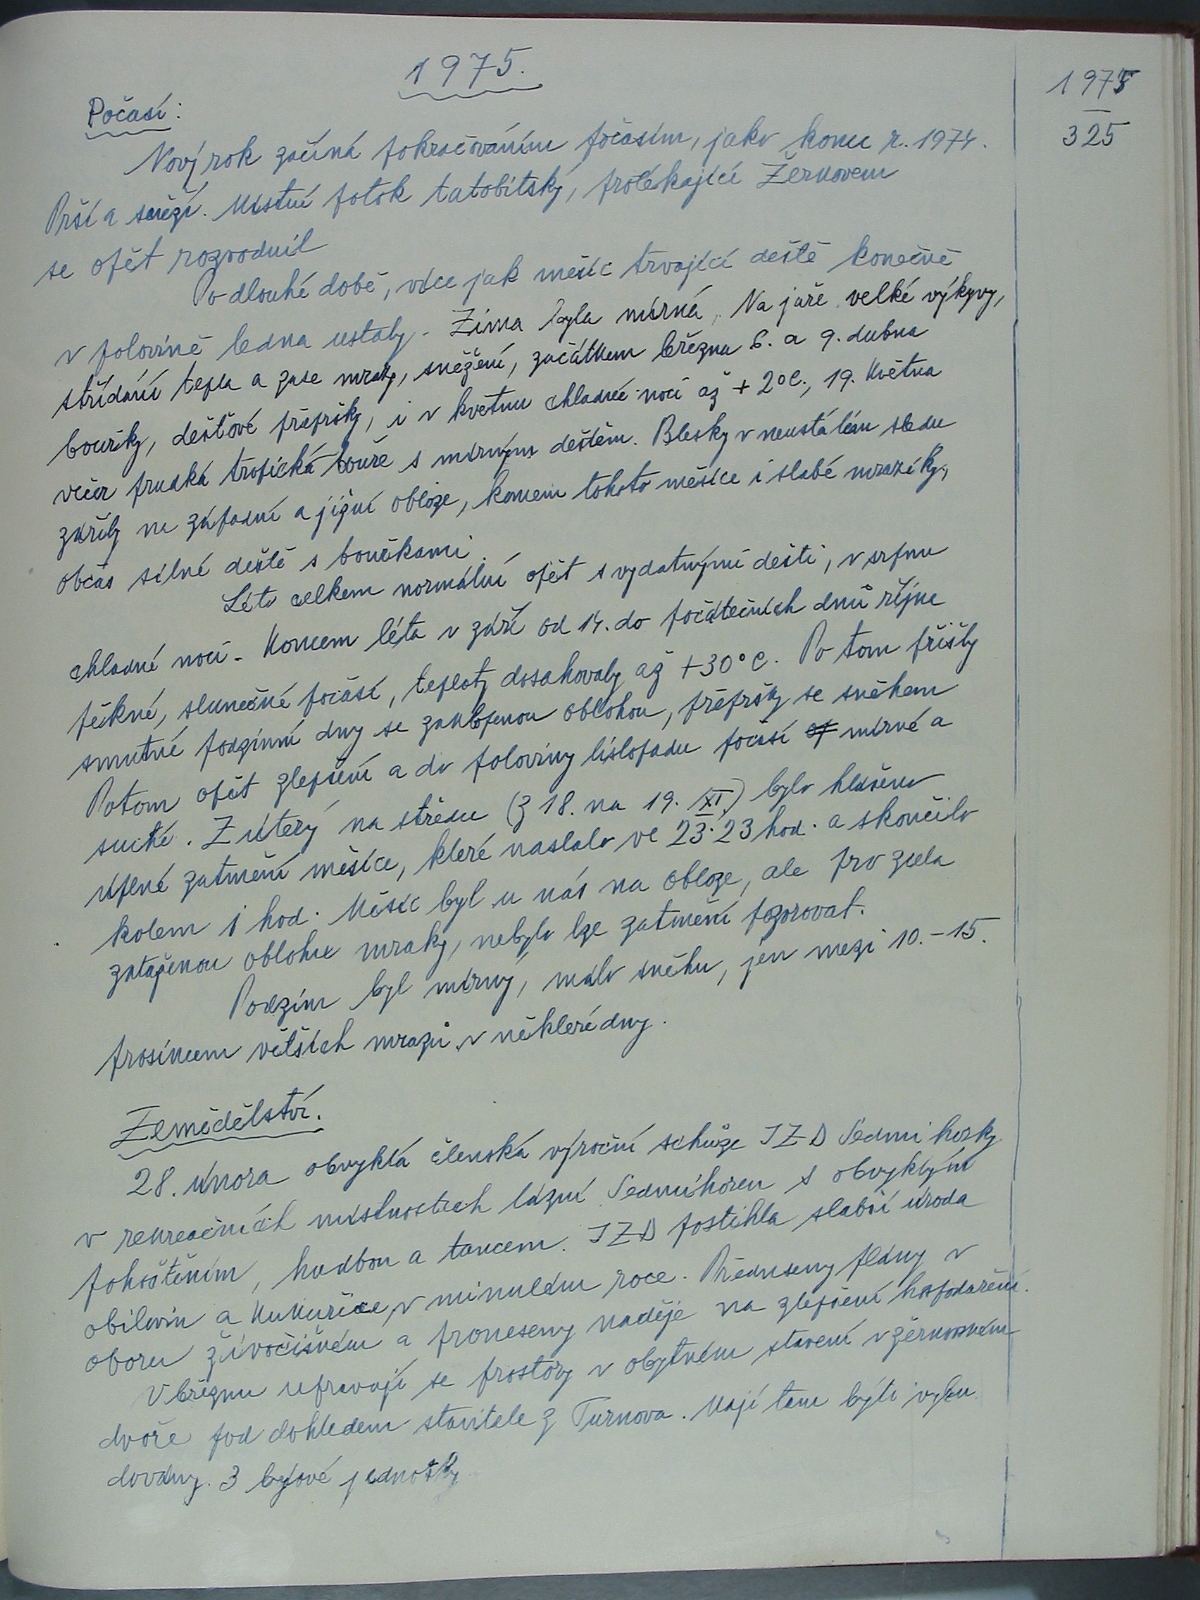 1975.
1975
325
Počasí:
Nový rok začíná pokračováním počasím, jako konec r. 1974.
Prší a sněží. Místní potok tatobitský, protékající Žernovem
se opět rozvodnil
Po dlouhé době, více jak měsíc trvající deště konečně
v polovině ledna ustaly. Zima byla mírná. Na jaře velké výkyvy,
střídání tepla a zase mrazy, sněžení, začátkem března 6. a 9. dubna
bouřky, dešťové přepršky, i v květnu chladné noci až +2°C., 19. května
večer prudká tropická bouře s mírným deštěm. Blesky v neustálém sledu
zářily na západní a jižní obloze, koncem tohoto měsíce i slabé mrazíky,
občas silné deště s bouřkami.
Léto celkem normální opět s vydatnými dešti, v srpnu
chladné noci. Koncem léta v září od 14. do počátečních dnů října
pěkné, slunečné počasí, teploty dosahovaly až +30°C. Po tom přišly
smutné podzimní dny se zaklopenou oblohou, přepršky se sněhem
Potom opět zlepšení a do poloviny listopadu počasí mírné a
suché. Z úterý na středu (z 18. na 19. XI.) bylo hlášeno
úplné zatmění měsíce, které nastalo ve 23.23 hod. a skončilo
kolem 1 hod. Měsíc byl u nás na obloze, ale pro zcela
zataženou oblohu mraky, nebylo lze zatmění pozorovat.
Podzim byl mírný, málo sněhu, jen mezi 10.-15.
prosincem větších mrazů v některé dny.
Zemědělství.
28. února obvyklá členská výroční schůze JZD Sedmihorky
v rekreačních místnostech lázní Sedmihorek s obvyklým
pohoštěním, hudbou a tancem. JZD postihla slabší úroda
obilovin a kukuřice v minulém roce. Předneseny plány v
oboru živočišném a proneseny naděje na zlepšení hospodaření.
V březnu upravují se prostory v obytném stavení v žernovském
dvoře pod dohledem stavitele z Turnova. Mají tam býti vybu
dovány 3 bytové jednotky